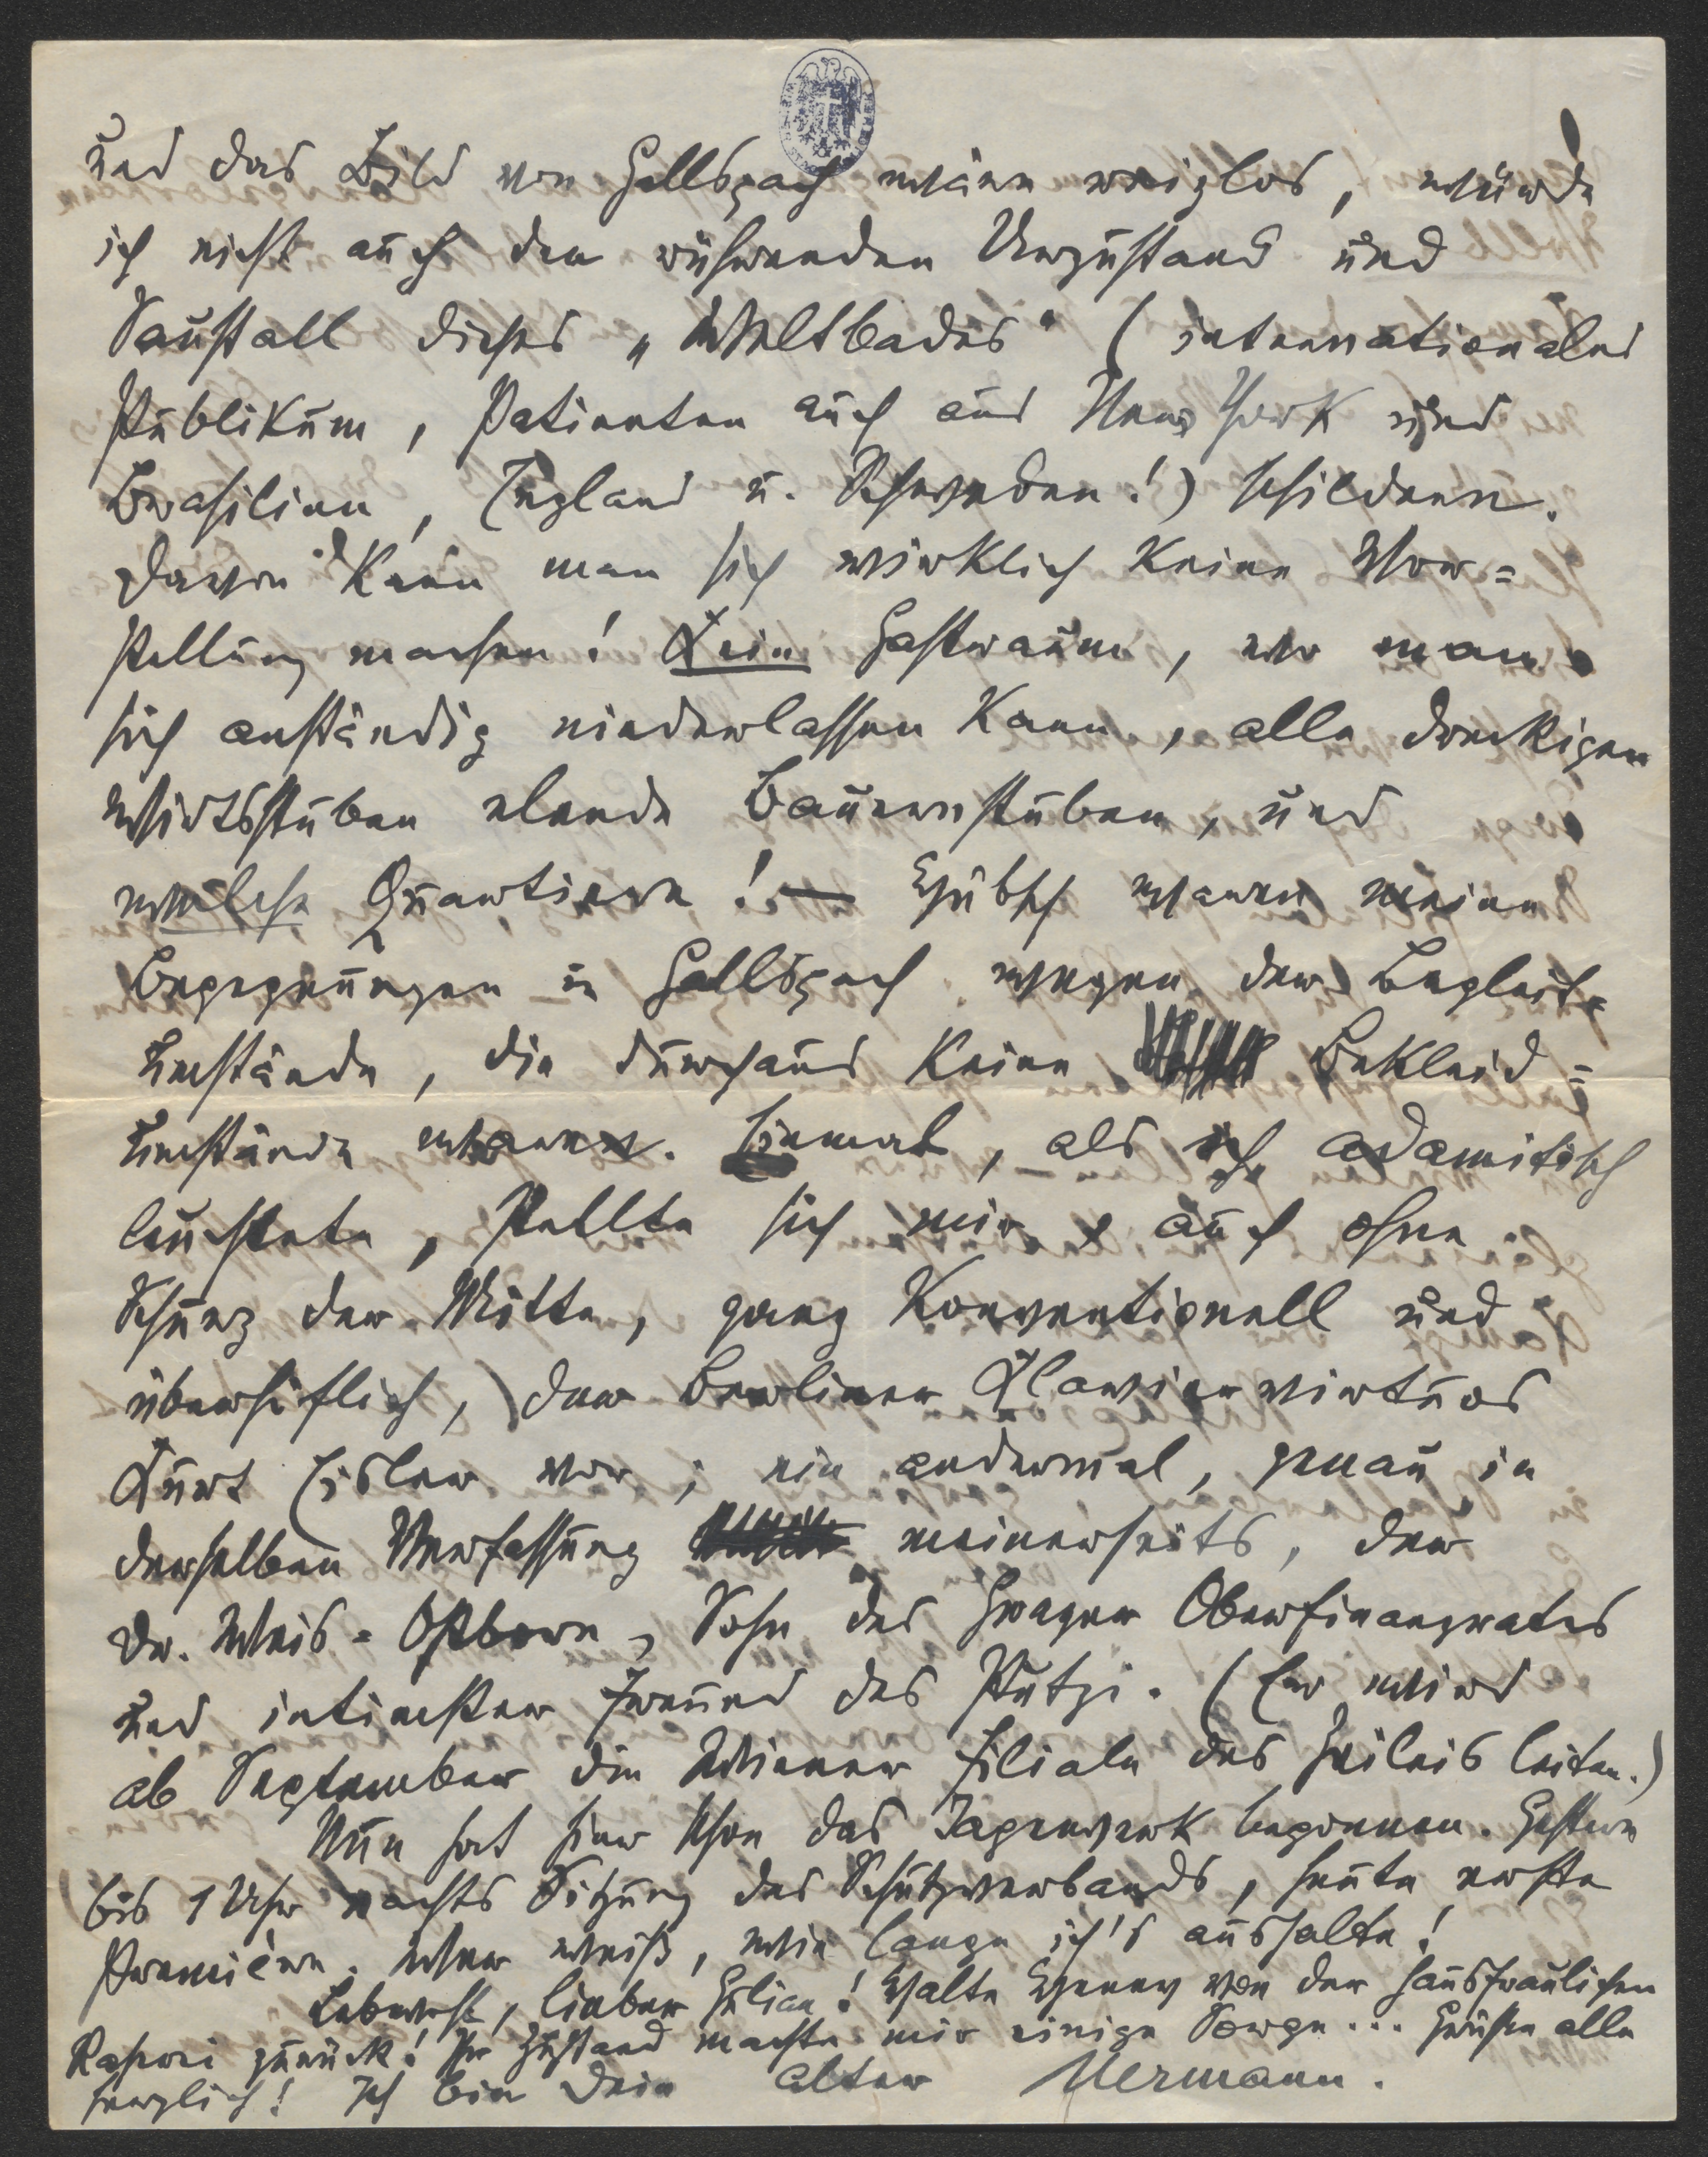 und das Bild von Gallspach wäre reizlos, würde
ich nicht auch den rührenden Urzustand und
Saustall dieses „Weltbades" (internationales
Publikum, Patienten auch aus New York und
Brasilien, England u. Schweden!) schildern.
Davon kann man sich wirklich keine Vor=
stellung machen! Kein Gastraum, wo man
sich anständig niederlassen kann, alle dreckigen
Wirtsstuben elende Bauernstuben, und
welche Quartiere! — Hübsch waren meine
Begegnungen in Gallspach wegen der Begleit=
umstände, die durchaus keine Bekleid=
umstände waren. Einmal, als ich adamitisch
leuchtete, stellte sich mir, auch ohne
Schurz der Mitte, ganz konventionell und
überhöflich, der Berliner Klaviervirtuos
Kurt Eisler vor; ein andermal, genau in
derselben Verfassung meinerseits, der
Dr. Weis-Ostborn, Sohn des Grazer Oberfinanzrates
und intimster Freund des Putzi. (Er wird
ab September die Wiener Filiale des Zeileis leiten.)
Nun hat hier schon das Tagewerk begonnen. Gestern
bis 1 Uhr nachts Sitzung des Schutzverbands, heute erste
Première. Wer weiß, wie lange ich's aushalte!
Lebwohl, lieber Julian! Halte von der hausfraulichen
Raserei zurück! Ihr Zustand machte mir einige Sorge... Grüße alle
herzlich! Ich bin Dein alter Hermann.